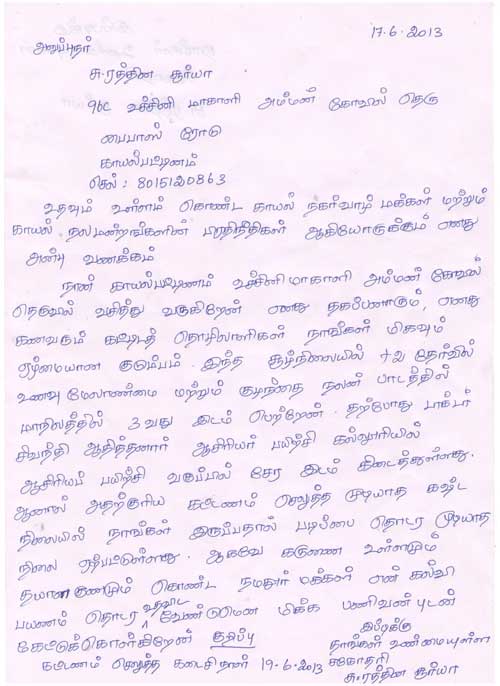 17.6.2013
அனுப்புநர்
சு.ரத்தின சூர்யா
96C உச்சினி மாகாளி அம்மன் கோவில் தெரு
பைபாஸ் ரோடு
காயல்பட்டிணம்
செல் : 8015120863
உதவும் உள்ளம் கொண்ட காயல் நகர்வாழ் மக்கள் மற்றும்
காயல் நலமன்றங்களின் பிரதிநிதிகள் ஆகியோருக்கும் எனது
அன்பு வணக்கம்
நான் காயல்பட்டிணம் உச்சினிமாகாளி அம்மன் கோவில்
தெருவில் வசித்து வருகிறேன் எனது தகப்பனாரும், எனது
கணவரும் கட்டிடத் தொழிலாளிகள் நாங்கள் மிகவும்
ஏழ்மையான குடும்பம். இந்த சூழ்நிலையில் +2 தேர்வில்
உணவு மேலாண்மை மற்றும் குழந்தை நலன் பாடத்தில்
மாநிலத்தில் 3 வது இடம் பெற்றேன். தற்போது டாக்டர்
சிவந்தி ஆதித்தனார் ஆசிரியர் பயிற்சி கல்லூரியில்
ஆசிரியப் பயிற்சி வகுப்பில் சேர இடம் கிடைத்துள்ளது.
ஆனால் அதற்குரிய கட்டணம் செலுத்த முடியாத கஷ்ட
நிலையில் நாங்கள் இருப்பதால் படிப்பை தொடர முடியாத
நிலை ஏற்பட்டுள்ளது. ஆகவே கருணை உள்ளமும்
தயாளகுணமும் கொண்ட நமதூர் மக்கள் என் கல்வி
பயணம் தொடர உதவிட வேண்டுமென மிக்க பணிவன்புடன்
கேட்டுக்கொள்கிறேன் குறிப்பு இப்படிக்கு
தங்கள் உண்மையுள்ள
கட்டணம் செலுத்த கடைசிநாள் 19.6.2013 சகோதரி
சு.ரத்தின சூர்யா